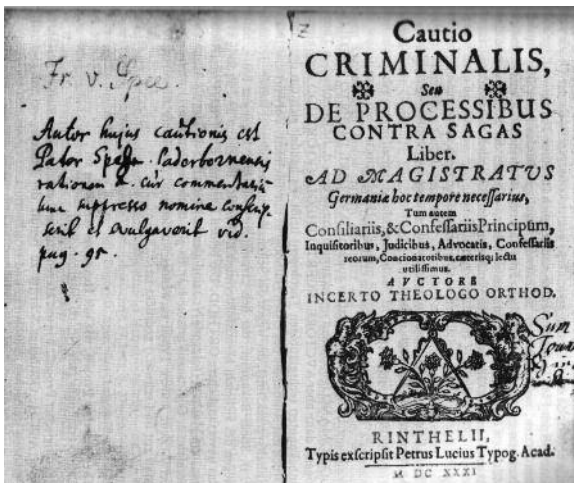 Fr. v. Spee.
Autor hujus cautionis est
Pater Paderbornensis
rationem cur
suppresso nomine conscrip-
serit et evulgaverit vid.
pag. 95.
Cautio
CRIMINALIS,
Seu
DE PROCESSIBUS
CONTRA SAGAS
Liber.
AD MAGISTRATUS
Germaniæ hoc tempore necessarius,
Tum autem
Consiliariis, & Confessariis Principum,
Inquisitoribus, Judicibus, Advocatis, Confessariis
reorum, Concionatoribus, cæterisq; lectu
utilissimus.
AVCTORE
INCERTO THEOLOGO ORTHOD.
Sum
RINTHELII,
Typis exscripsit Petrus Lucius Typog. Acad.
M DC XXXI